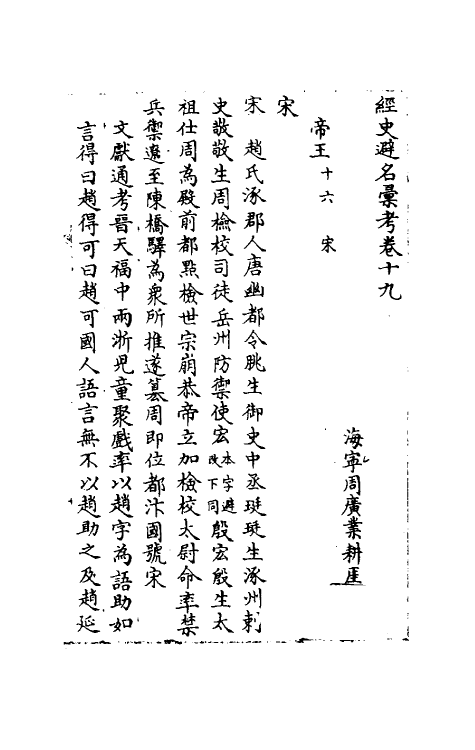 經史避名彙考卷十九
海寧周廣業耕厓
帝王十六 宋
宋
宋 趙氏涿郡人唐幽都令朓生御史中丞珽珽生涿州刺
史敬敬生周檢校司徒岳州防禦使宏本字避改下同殷宏殷生太
祖仕周為殿前都點檢世宗崩恭帝立加檢校太尉命率禁
兵禦邊至陳橋驛為衆所推遂篡周即位都汴國號宋
文獻通考晉天福中兩浙兒童聚戲率以趙字為語助如
言得曰趙得可曰趙可國人語言無不以趙助之及趙延